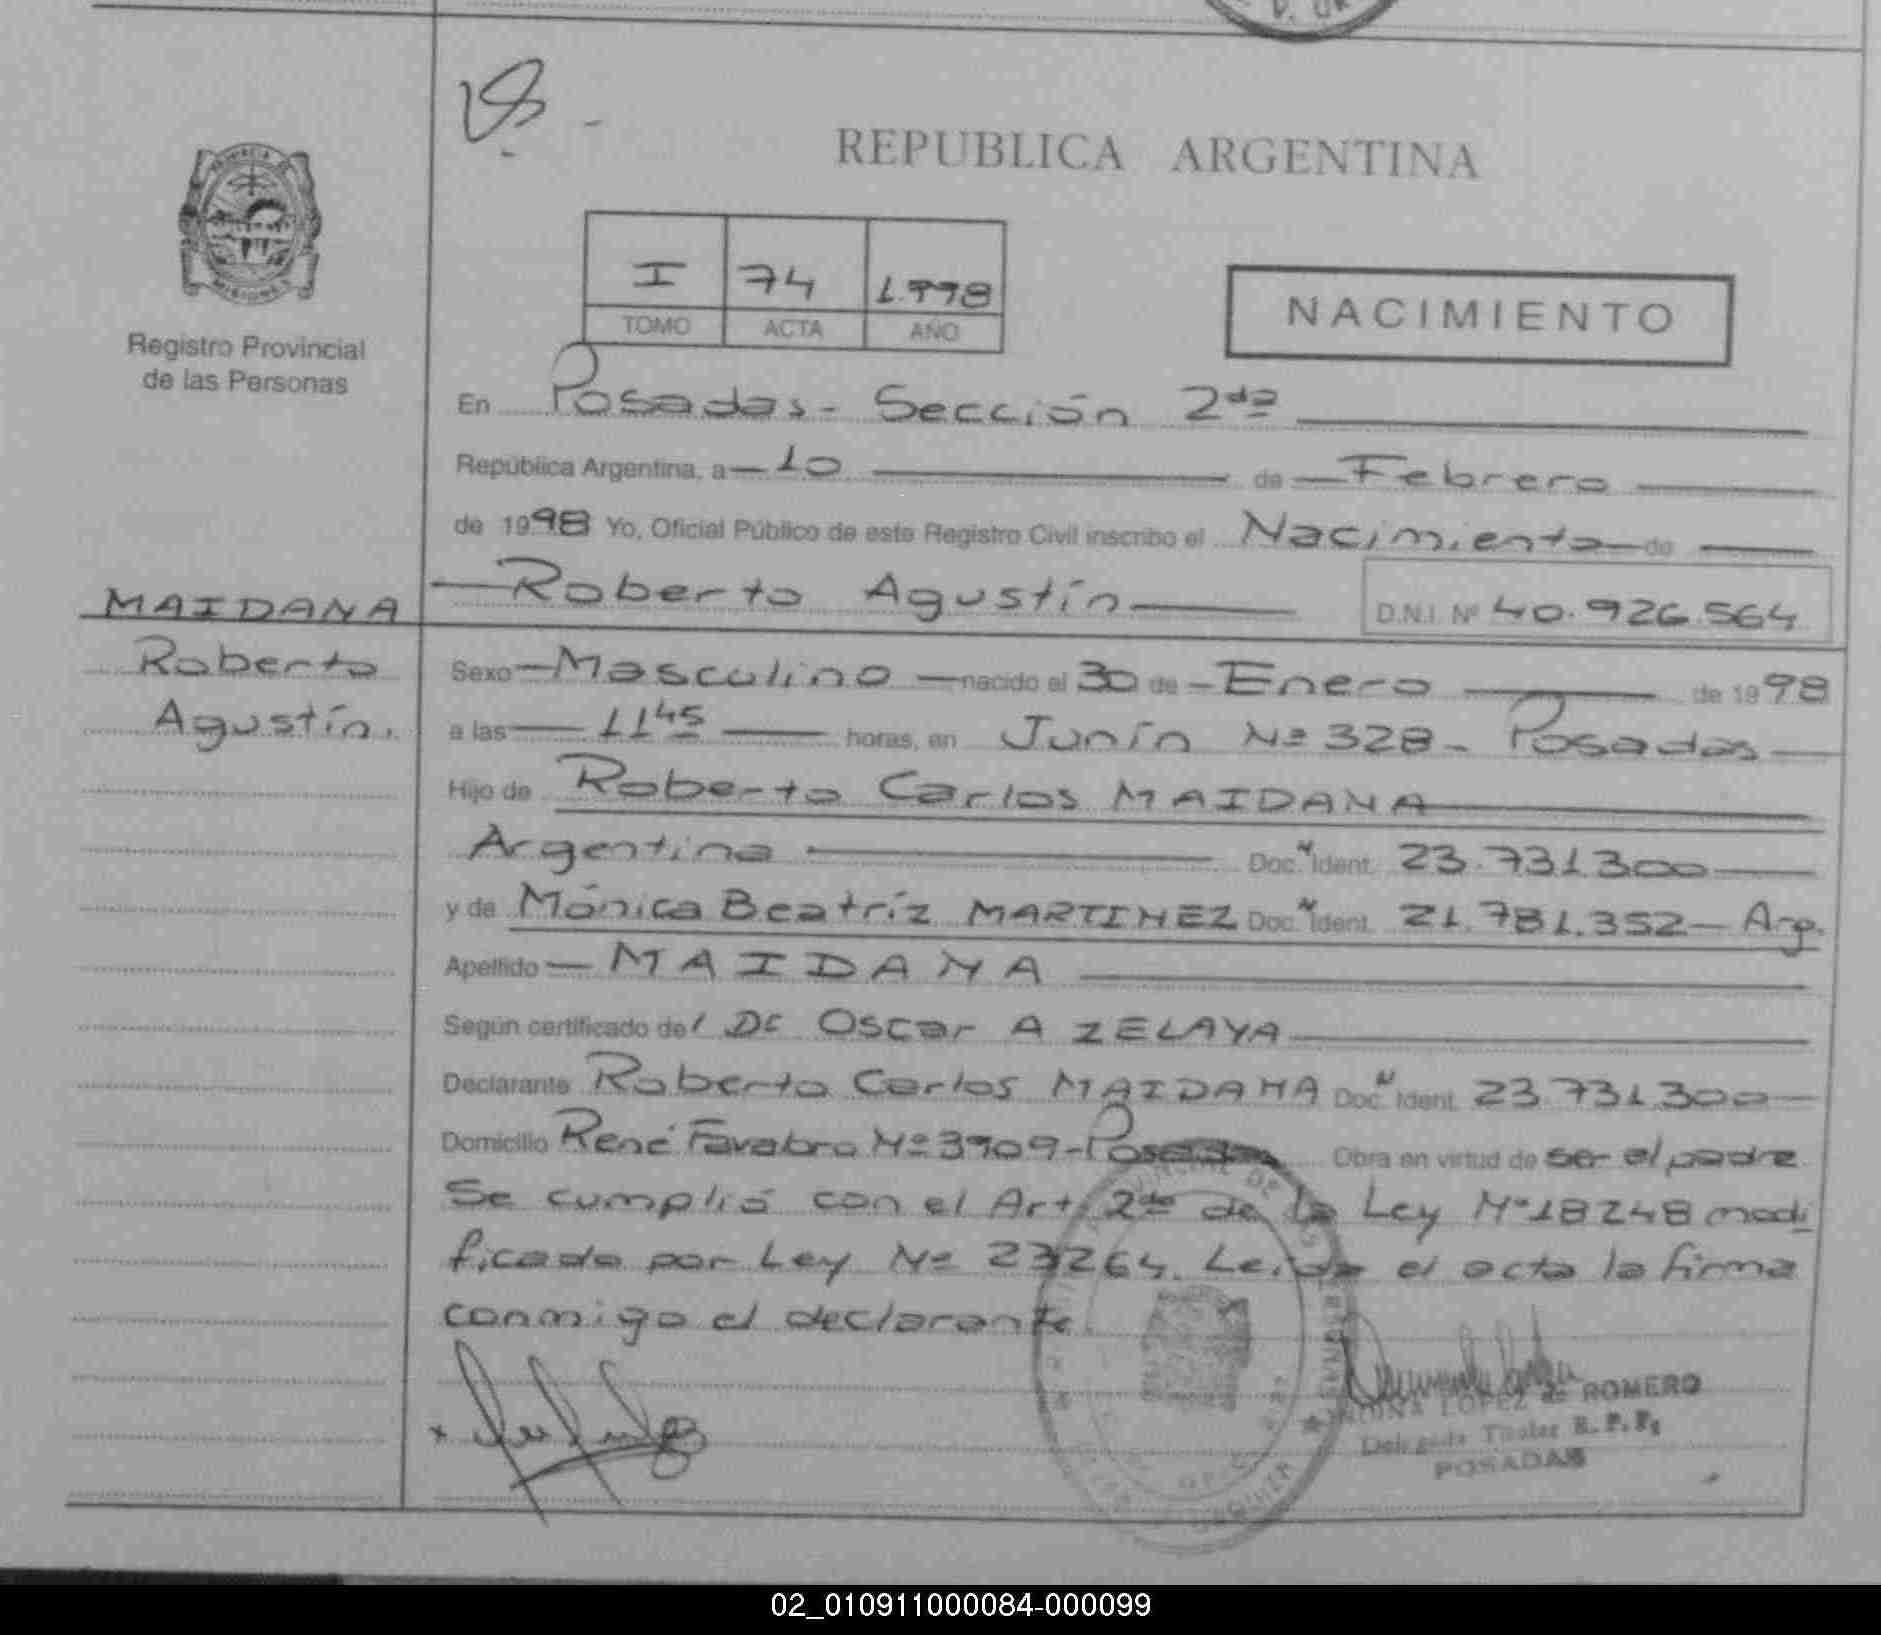 REPUBLICA ARGENTINA
I 74 1.998
TOMO ACTA AÑO
NACIMIENTO
Registro Provincial
de las Personas
En Posadas - Sección 2da
República Argentina, a 10 de Febrero
de 1998 Yo, Oficial Público de este Registro Civil inscribo el Nacimiento de
MAIDANA
Roberto
Agustín.
Roberto Agustín D.N.I. Nº 40.926.564
Sexo Masculino nacido el 30 de Enero de 1998
a las 11 45 horas, en Junín Nº 328 - Posadas
Hijo de Roberto Carlos MAIDANA
Argentino Doc. Ident. 23.731.300
y de Mónica Beatríz MARTINEZ Doc. Ident. 21.781.352 - Arg.
Apellido MAIDANA
Según certificado del Dr Oscar A ZELAYA
Declarante Roberto Carlos MAIDANA Doc. Ident. 23.731.300
Domicilio René Favabro Nº 3909 - Posadas Obra en virtud de ser el padre
Se cumplió con el Art 2do de la Ley Nº 18248 modi
ficado por Ley Nº 23264. Leida el acta la firma
conmigo el declarante.
LOPEZ de ROMERO
Delegada Titular R. P. P.
POSADAS
02_010911000084-000099